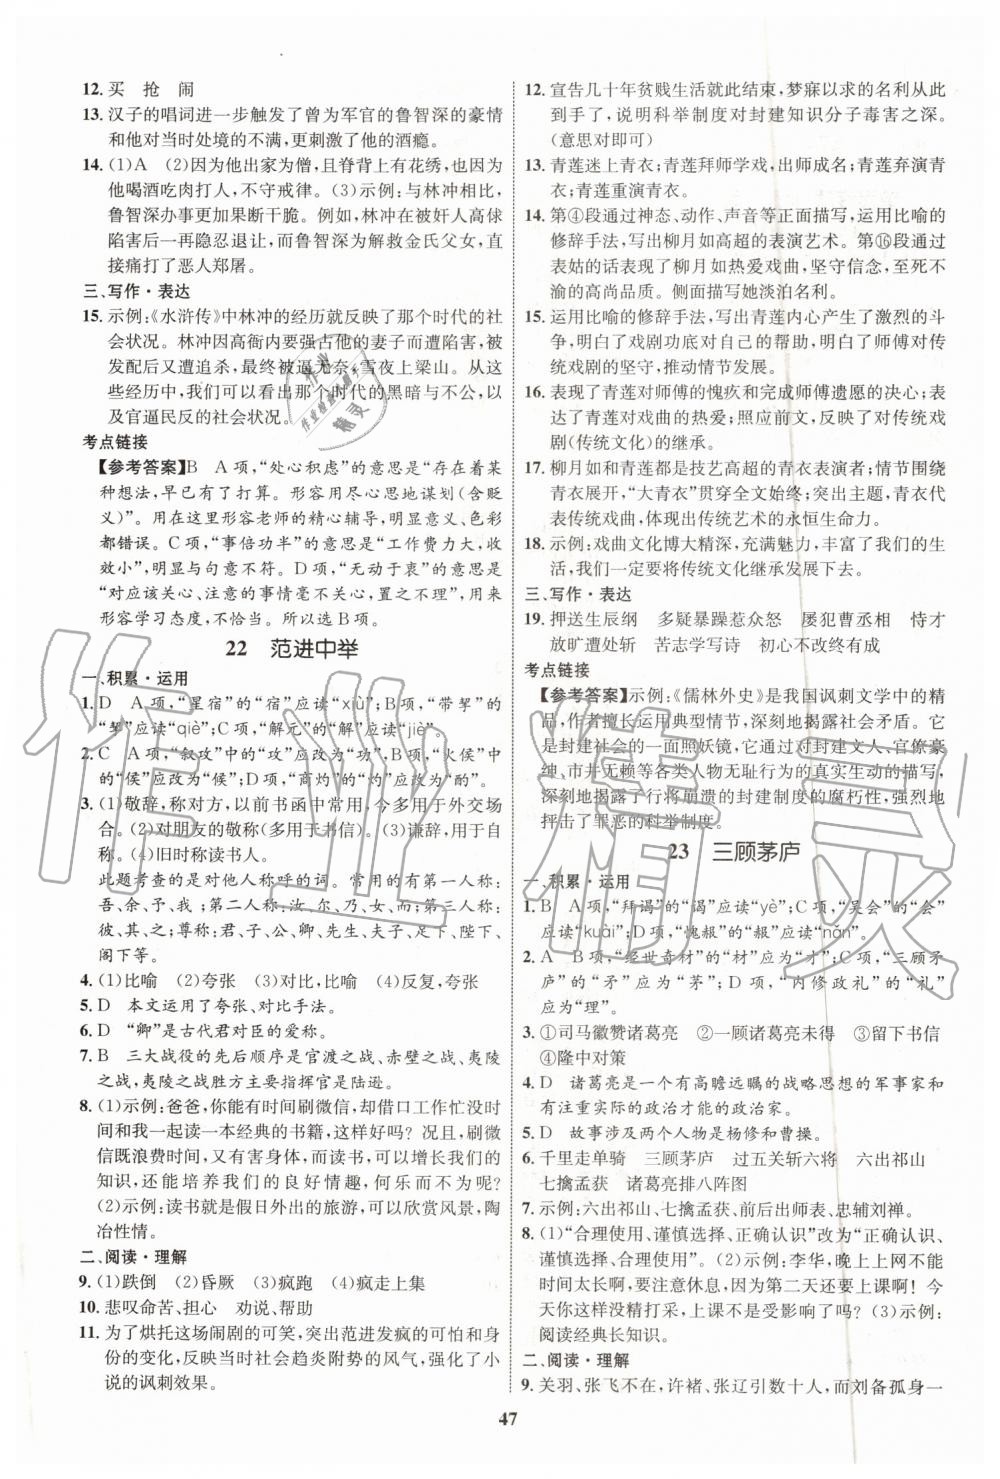 12. 买　抢　闹
13. 汉子的唱词进一步触发了曾为军官的鲁智深的豪情
和他对当时处境的不满,更刺激了他的酒瘾。
14. (1)A　(2)因为他出家为僧,且脊背上有花绣,也因
他喝酒吃肉打人,不守戒律。(3)示例:与林冲相比,
鲁智深办事更加果断干脆。例如,林冲在被奸人高俅
陷害后一再隐忍退让,而鲁智深为解救金氏父女,直
接痛打了恶人郑屠。
三、写作·表达
15. 示例:《水浒传》中林冲的经历就反映了那个时代的社
会状况。林冲因高衙内要强占他的妻子而遭陷害,被
发配后又遭追杀,最后被逼无奈,雪夜上梁山。从这
些经历中,我们可以看出那个时代的黑暗与不公,以
及官逼民反的社会状况。
考点链接
【参考答案】B　A项,“处心积虑”的意思是“存在着某
种想法,早已有了打算。形容用尽心思地谋划(含贬
义)”。用在这里形容老师的精心辅导,明显意义、色彩
都错误。C项,“事倍功半”的意思是“工作费力大,收
效小”,明显与句意不符。D项,“无动于衷”的意思是
“对应该关心、注意的事情毫不关心,置之不理”,用来
形容学习态度,不恰当。所以选B项。
22　范进中举
一、积累·运用
1. D　A项,“星宿”的“宿”应读“xiù”;B项,“带挈”的
“挈”应读“qiè”;C项,“解元”的“解”应读“jiè”。
2. C　A项,“叙攻”中的“攻”应改为“功”,B项,“火侯”中
的“侯”应改为“候”;D项,“商灼”的“灼”应改为“酌”。
3. (1)敬辞,称对方,以前书函中常用,今多用于外交场
合。(2)对朋友的敬称(多用于书信)。(3)谦辞,用于
自称。(4)旧时称读书人。
此题考查的是对他人称呼的词。常用的有第一人称:
吾、余、我、予;第二人称:汝、尔、乃、若;第三人称:
彼、其、之;尊称:君、子、公、卿、先生、夫子、足下、陛下、
阁下等。
4. (1)比喻　(2)夸张　(3)比喻　(4)反复,夸张
5. D　本文运用了夸张、对比手法。
6. D　“卿”是古代君对臣的爱称。
7. B　三大战役的先后顺序是官渡之战、赤壁之战、夷陵
之战,夷陵之战胜方主要指挥官是陆逊。
8. (1)示例:爸爸,你能有时间刷微信,却借口工作忙没时
间和我一起读一本经典的书籍,这样好吗？况且,刷微
信既浪费时间,又有害身体,而读书,可以增长我们的
知识,还能培养我们的良好情趣,何乐而不为呢?
(2)示例:读书就是假日外出的旅游,可以欣赏风景,陶
冶性情。
二、阅读·理解
9. (1)跌倒　(2)昏厥　(3)疯跑　(4)疯走上集
10. 悲叹命苦、担心　劝说、帮助
11. 为了烘托这场闹剧的可笑,突出范进发疯的可怕和身
份的变化,反映当时社会趋炎附势的风气,强化了小
说的讽刺效果。
12. 宣告几十年贫贱生活就此结束,梦寐以求的名利从此
到手了,说明科举制度对封建知识分子毒害之深。
(意思对即可)
13. 青莲迷上青衣;青莲拜师学戏,出师成名;青莲弃演青
衣;青莲重演青衣。
14. 第④段通过神态、动作、声音等正面描写,运用比喻的
修辞手法,写出柳月如高超的表演艺术。第⑯段通过
表姑的话写出了柳月如热爱戏曲,坚守信念,不求名
利的高尚品质。侧面描写她淡泊名利。
15. 运用比喻的修辞手法,写出青莲内心产生了激烈的斗
争,明白了戏剧功底对自己的帮助,明白了师傅对传
统戏剧的坚守,推动情节发展。
16. 表现了青莲对师傅的愧疚和完成师傅遗愿的决心;表
达了青莲对戏曲的热爱;照应前文,反映了对传统戏
剧(传统文化)的继承。
17. 柳月如和青莲都是技艺高超的青衣表演者;情节围绕
青衣展开,“大青衣”贯穿全文始终;突出主题,青衣代
表传统戏曲,体现出传统艺术的永恒生命力。
18. 示例:戏曲文化博大精深,充满魅力,丰富了我们的生
活,我们一定要将传统文化继承发展下去。
三、写作·表达
19. 押送生辰纲　多疑暴躁惹众怒　屡犯曹丞相　恃才
放旷遭处斩　苦志学写诗　初心不改终有成
考点链接
【参考答案】示例:《儒林外史》是我国讽刺文学中的精
品,作者擅长运用典型情节,深刻地揭露社会矛盾。它
是封建社会的一面照妖镜,通过对封建文人、官僚豪
绅、市井无赖等各类人物无耻行为的真实生动的描写,
深刻地揭露了行将崩溃的封建制度的腐朽性,强烈地
抨击了罪恶的科举制度。
23　三顾茅庐
一、积累·运用
1. B　A项,“拜谒”的“谒”应读“yè”;C项,“吴会”的“会”
应读“kuài”;D项,“愧赧”的“赧”应读“nǎn”。
2. A　B项,“经世奇材”的“材”应为“才”;C项,“三顾矛
庐”的“矛”应为“茅”;D项,“内修政礼”的“礼”
应为“理”。
3. ①司马徽赞诸葛亮　②一顾诸葛亮未得　③留下书信
④隆中对策
4. D　诸葛亮是一个有高瞻远瞩的战略思想的军事家和
有注重实际的政治才能的政治家。
5. D　故事涉及两个人物是杨修和曹操。
6. 千里走单骑　三顾茅庐　过五关斩六将　六出祁山
七擒孟获　诸葛亮排八阵图
7. 示例:六出祁山、七擒孟获、前后出师表、忠辅刘禅。
8. (1)“合理使用、谨慎选择、正确认识”改为“正确认识、
谨慎选择、合理使用”。(2)示例:李华,晚上上网不能
时间太长啊!要注意休息,因为第二天还要上课啊!今
天你这样无精打采,上课不是受影响了吗?(3)示例:
阅读经典长知识。
二、阅读·理解
9. 关羽、张飞不在,许褚、张辽引数十人,而刘备孤身一
47
作业精灵